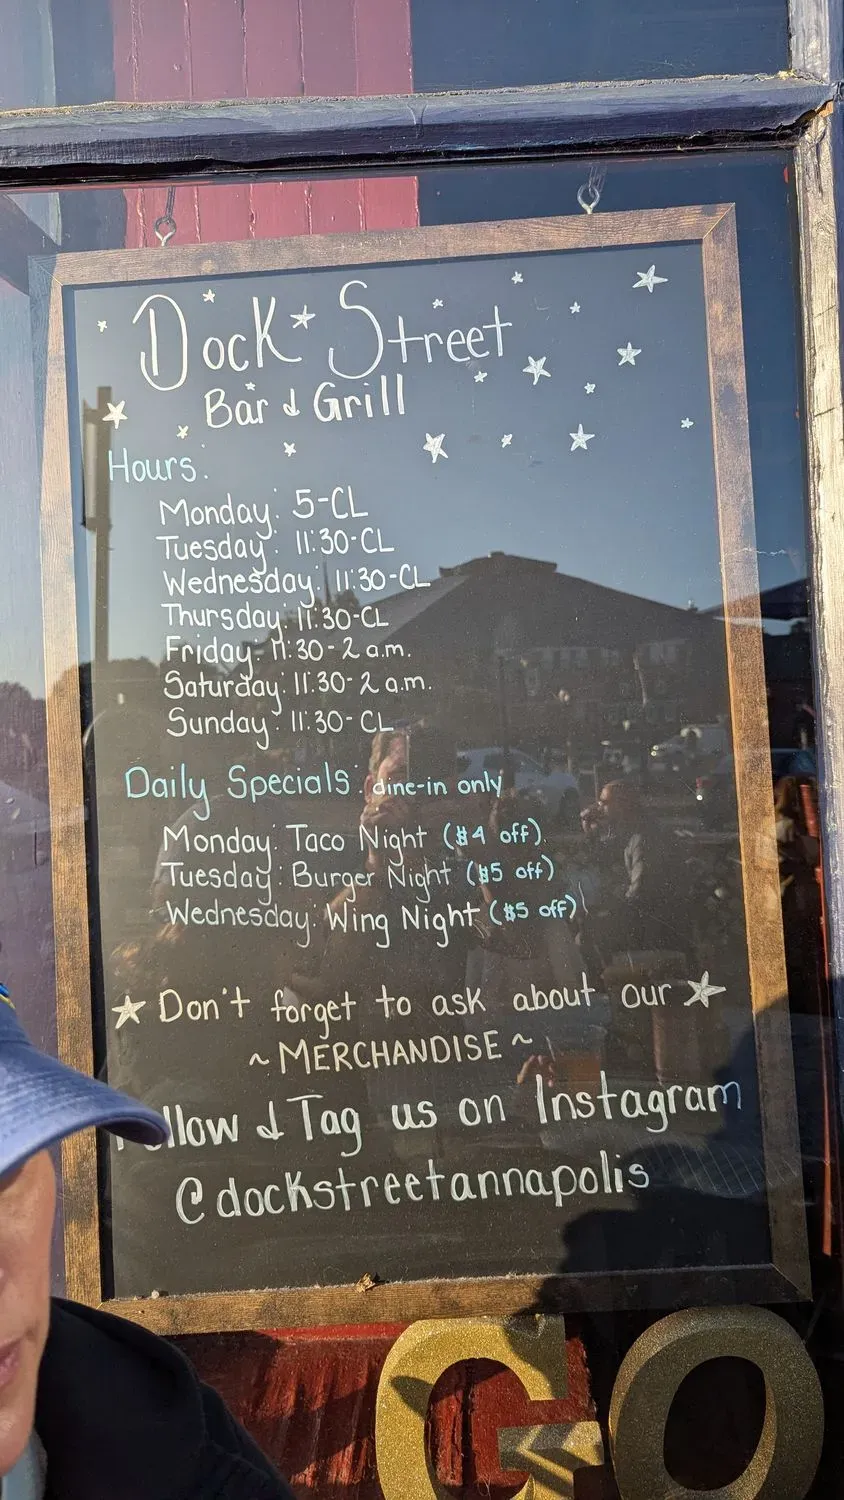 Dock Street
Bar & Grill
Hours:
Monday: 5-CL
Tuesday: 11:30-CL
Wednesday: 11:30-CL
Thursday: 11:30-CL
Friday: 11:30-2 a.m.
Saturday: 11:30-2 a.m.
Sunday: 11:30-CL
Daily Specials: dine-in only
Monday: Taco Night ($4 off)
Tuesday: Burger Night ($5 off)
Wednesday: Wing Night ($5 off)
Don't forget to ask about our
~MERCHANDISE~
llow & Tag us on Instagram
@dockstreetannapolis
GO